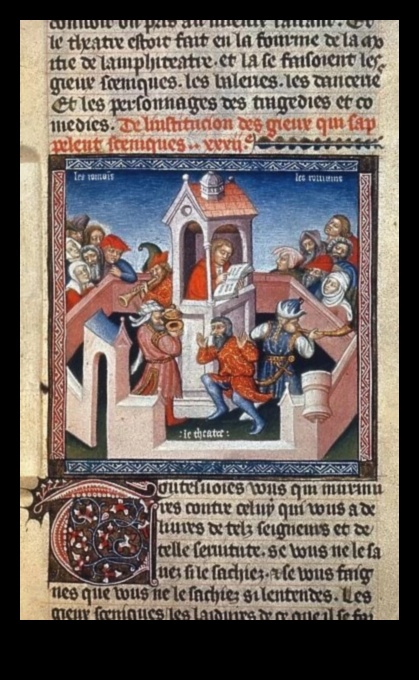 le theatre estoit fait en la fourme de la moi
tie de lamphiteatre. et la se faisoient les
gieux sceniques. les baleries. les danceries
Et les personnages des tragedies et co
medies. De linstitucion des gieux qui sap
pelent sceniques .. xxxij.
les romais
les romains
: le theatre :
scoutes vous qui murmu
res contre celuy qui vous a de
liures de telz seigneurs et de
telle seruitute. se vous ne le sa
uez si le sachiez. et se vous faig
nes que vous ne le sachiez si lentendes. Les
gieux sceniques